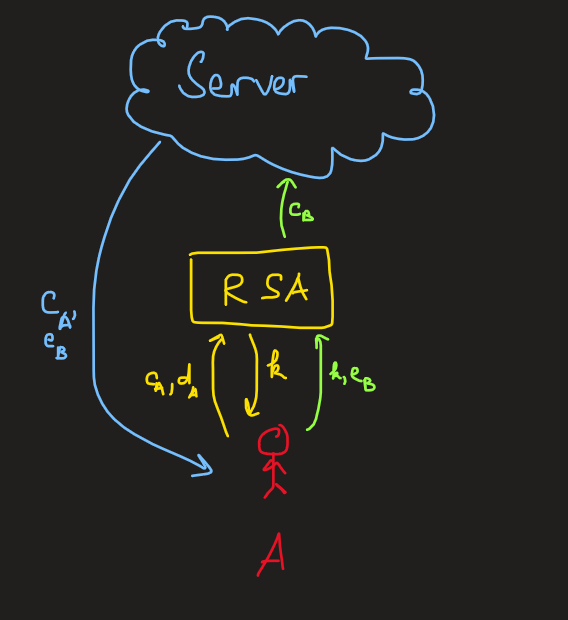 Server
c_B
RSA
C_A,
e_B
c_A, d_A
k
k, e_B
A